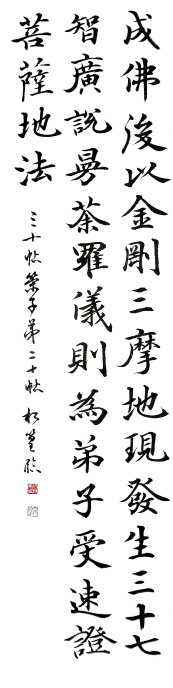 成佛後以金剛三摩地現發生三十七
智廣說曼荼羅儀則為弟子受速證
菩薩地法
三十帖策子第二十帖